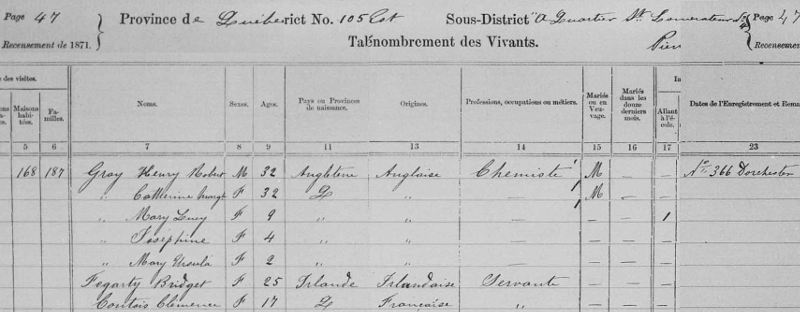 Page 47 Province de Québec rict No. 105 Sous-District "A Quartier St. Page 47
Recensement de 1871. Tab nombrement des Vivants. Recensement
e des visites. In
ons Maisons habitées. Familles. Noms. Sexes. Ages. Pays ou Provinces de naissance. Origines. Professions, occupations ou métiers. Mariés ou en Veuvage. Mariés dans les douze derniers mois. Allant à l'école. Dates de l'Enregistrement et Rema
5 6 7 8 9 11 13 14 15 16 17 23
168 187 Gray Henry Robert M 32 Angleterre Anglaise Chemiste M — — No. 366 Dorchester
" Catherine F 32 Q " — M — —
" Mary Lucy F 9 " " — — — 1
" Josephine F 4 " " — — — —
" Mary Ursula F 2 " " — — — —
Fegarty Bridget F 25 Irlande Irlandaise Servante — — —
Contois Clémence F 17 Q Française " — — —